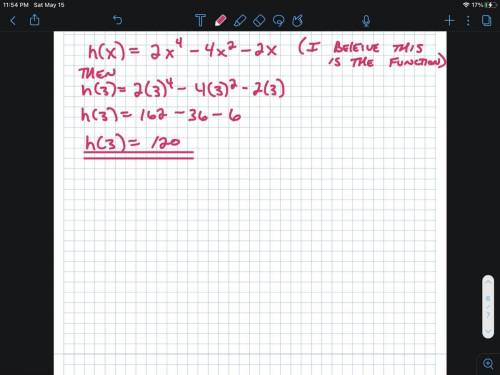 11:54 PM Sat May 15
17%
h(x) = 2x⁴ - 4x² - 2x (I BELEIVE THIS
IS THE FUNCTION)
THEN
h(3) = 2(3)⁴ - 4(3)² - 2(3)
h(3) = 162 - 36 - 6
h(3) = 120